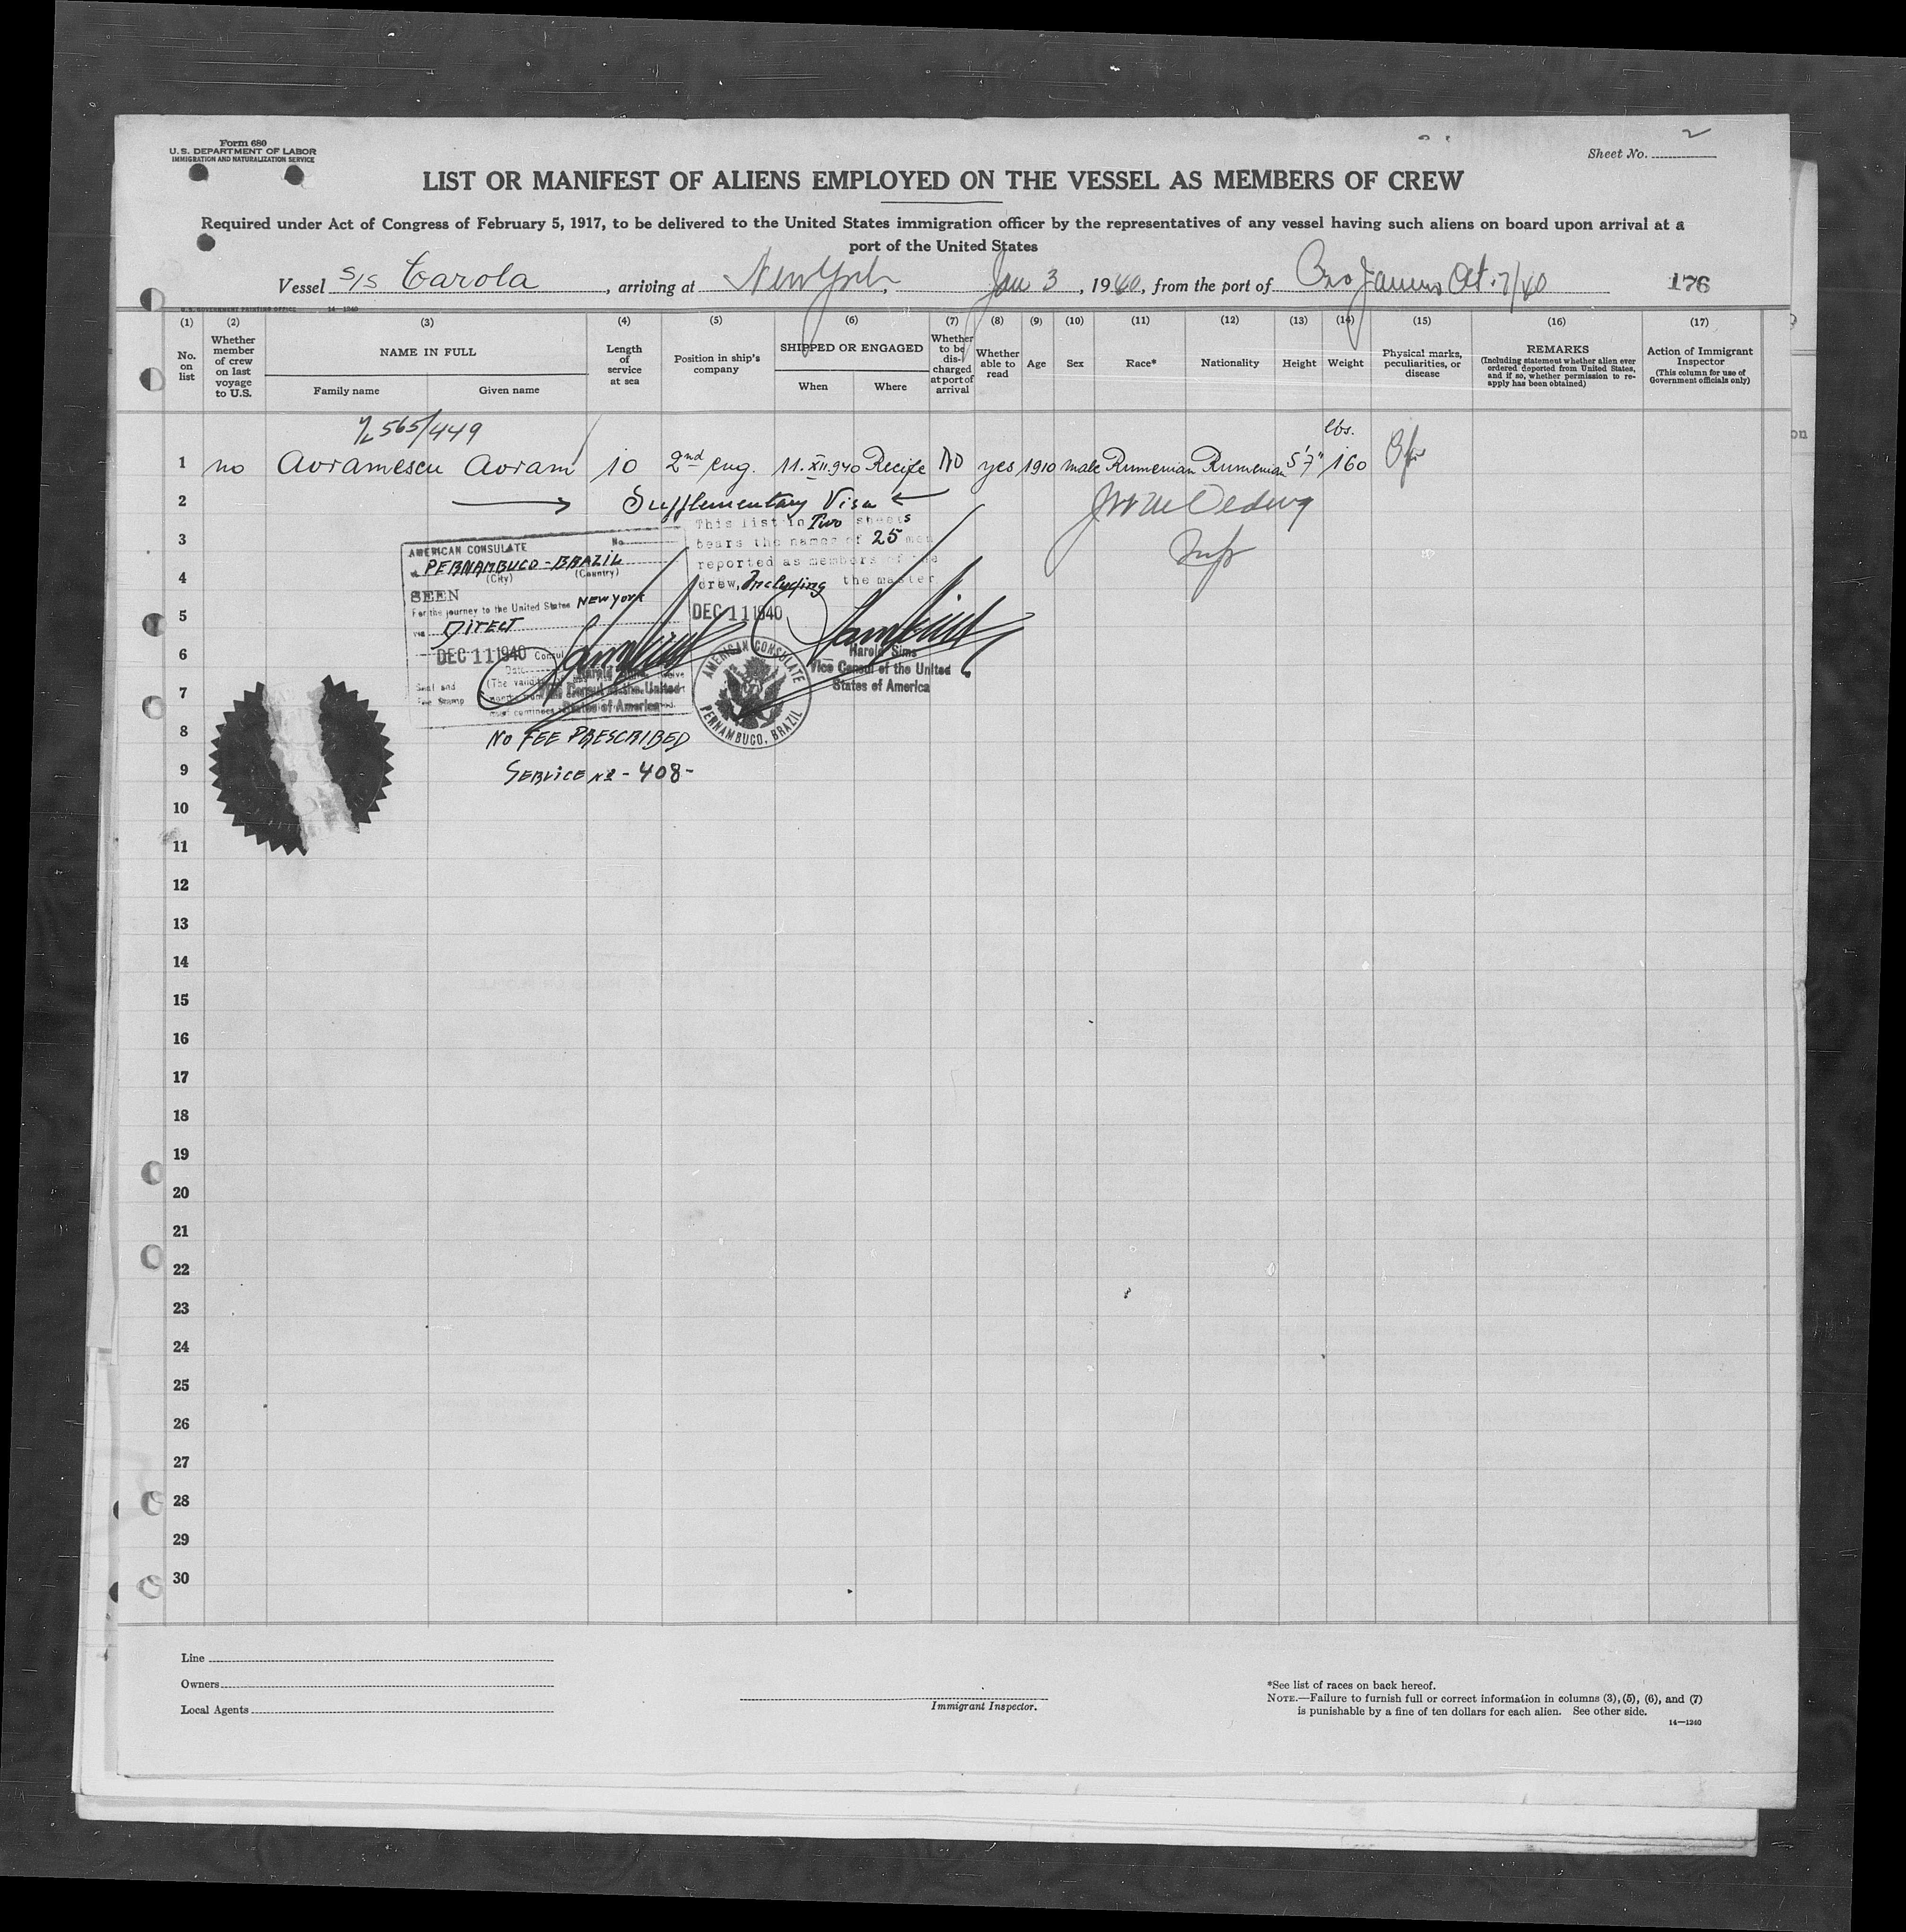 Form 680
U.S. DEPARTMENT OF LABOR
IMMIGRATION AND NATURALIZATION SERVICE
Sheet No. 2
LIST OR MANIFEST OF ALIENS EMPLOYED ON THE VESSEL AS MEMBERS OF CREW
Required under Act of Congress of February 5, 1917, to be delivered to the United States immigration officer by the representatives of any vessel having such aliens on board upon arrival at a
port of the United States
Vessel S/S Carola, arriving at New York, Jan 3, 1940, from the port of Oct. 7/40 176
U.S. GOVERNMENT PRINTING OFFICE 14—1240
(1) (2) (3) (4) (5) (6) (7) (8) (9) (10) (11) (12) (13) (14) (15) (16) (17)
No. on list
Whether member of crew on last voyage to U.S.
NAME IN FULL
Family name Given name
Length of service at sea
Position in ship's company
SHIPPED OR ENGAGED
When Where
Whether to be discharged at port of arrival
Whether able to read
Age
Sex
Race*
Nationality
Height
Weight
Physical marks, peculiarities, or disease
REMARKS
(Including statement whether alien ever ordered deported from United States, and if so, whether permission to reapply has been obtained)
Action of Immigrant Inspector
(This column for use of Government officials only)
565/449
lbs.
1 no Avramescu Avram 10 2nd eng. 11.XII.940 Recife NO yes 1910 male Rumenian Rumenian 5'7" 160
2 Supplementary Visa
3
4
5
6
7
8
9
10
11
12
13
14
15
16
17
18
19
20
21
22
23
24
25
26
27
28
29
30
AMERICAN CONSULATE No.
PERNAMBUCO - BRAZIL
(City) (Country)
SEEN
For the journey to the United States NEW YORK
via DIRECT
DEC 11 1940 Consul
Date
Seal and
Fee Stamp
Vice Consul of the United
States of America
NO FEE PRESCRIBED
SERVICE No - 408-
This list in Two sheets
bears the names of 25 men
reported as members of the
crew, Including the master
DEC 11 1940
AMERICAN CONSULATE
PERNAMBUCO, BRAZIL
Harold Sims
Vice Consul of the United
States of America
Line
Owners
Local Agents
Immigrant Inspector.
*See list of races on back hereof.
NOTE.—Failure to furnish full or correct information in columns (3), (5), (6), and (7)
is punishable by a fine of ten dollars for each alien. See other side.
14—1240